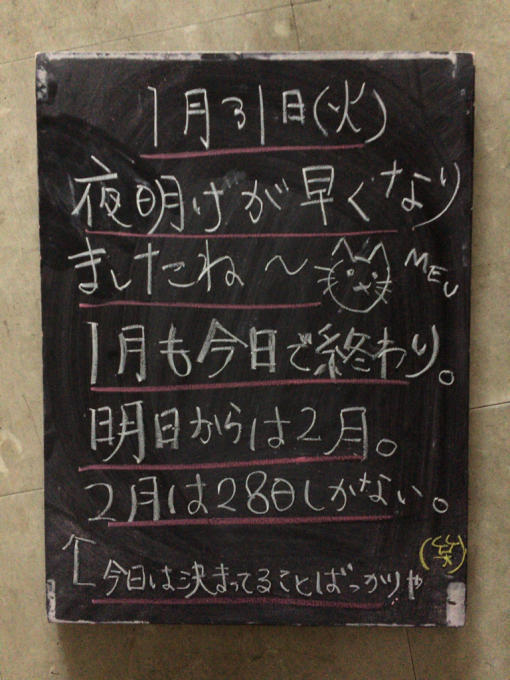 1月31日(火)
夜明けが早くなり
ましたね～ MEU
1月も今日で終わり。
明日からは2月。
2月は28日しかない。
(笑)
今日は決まってることばっかりや